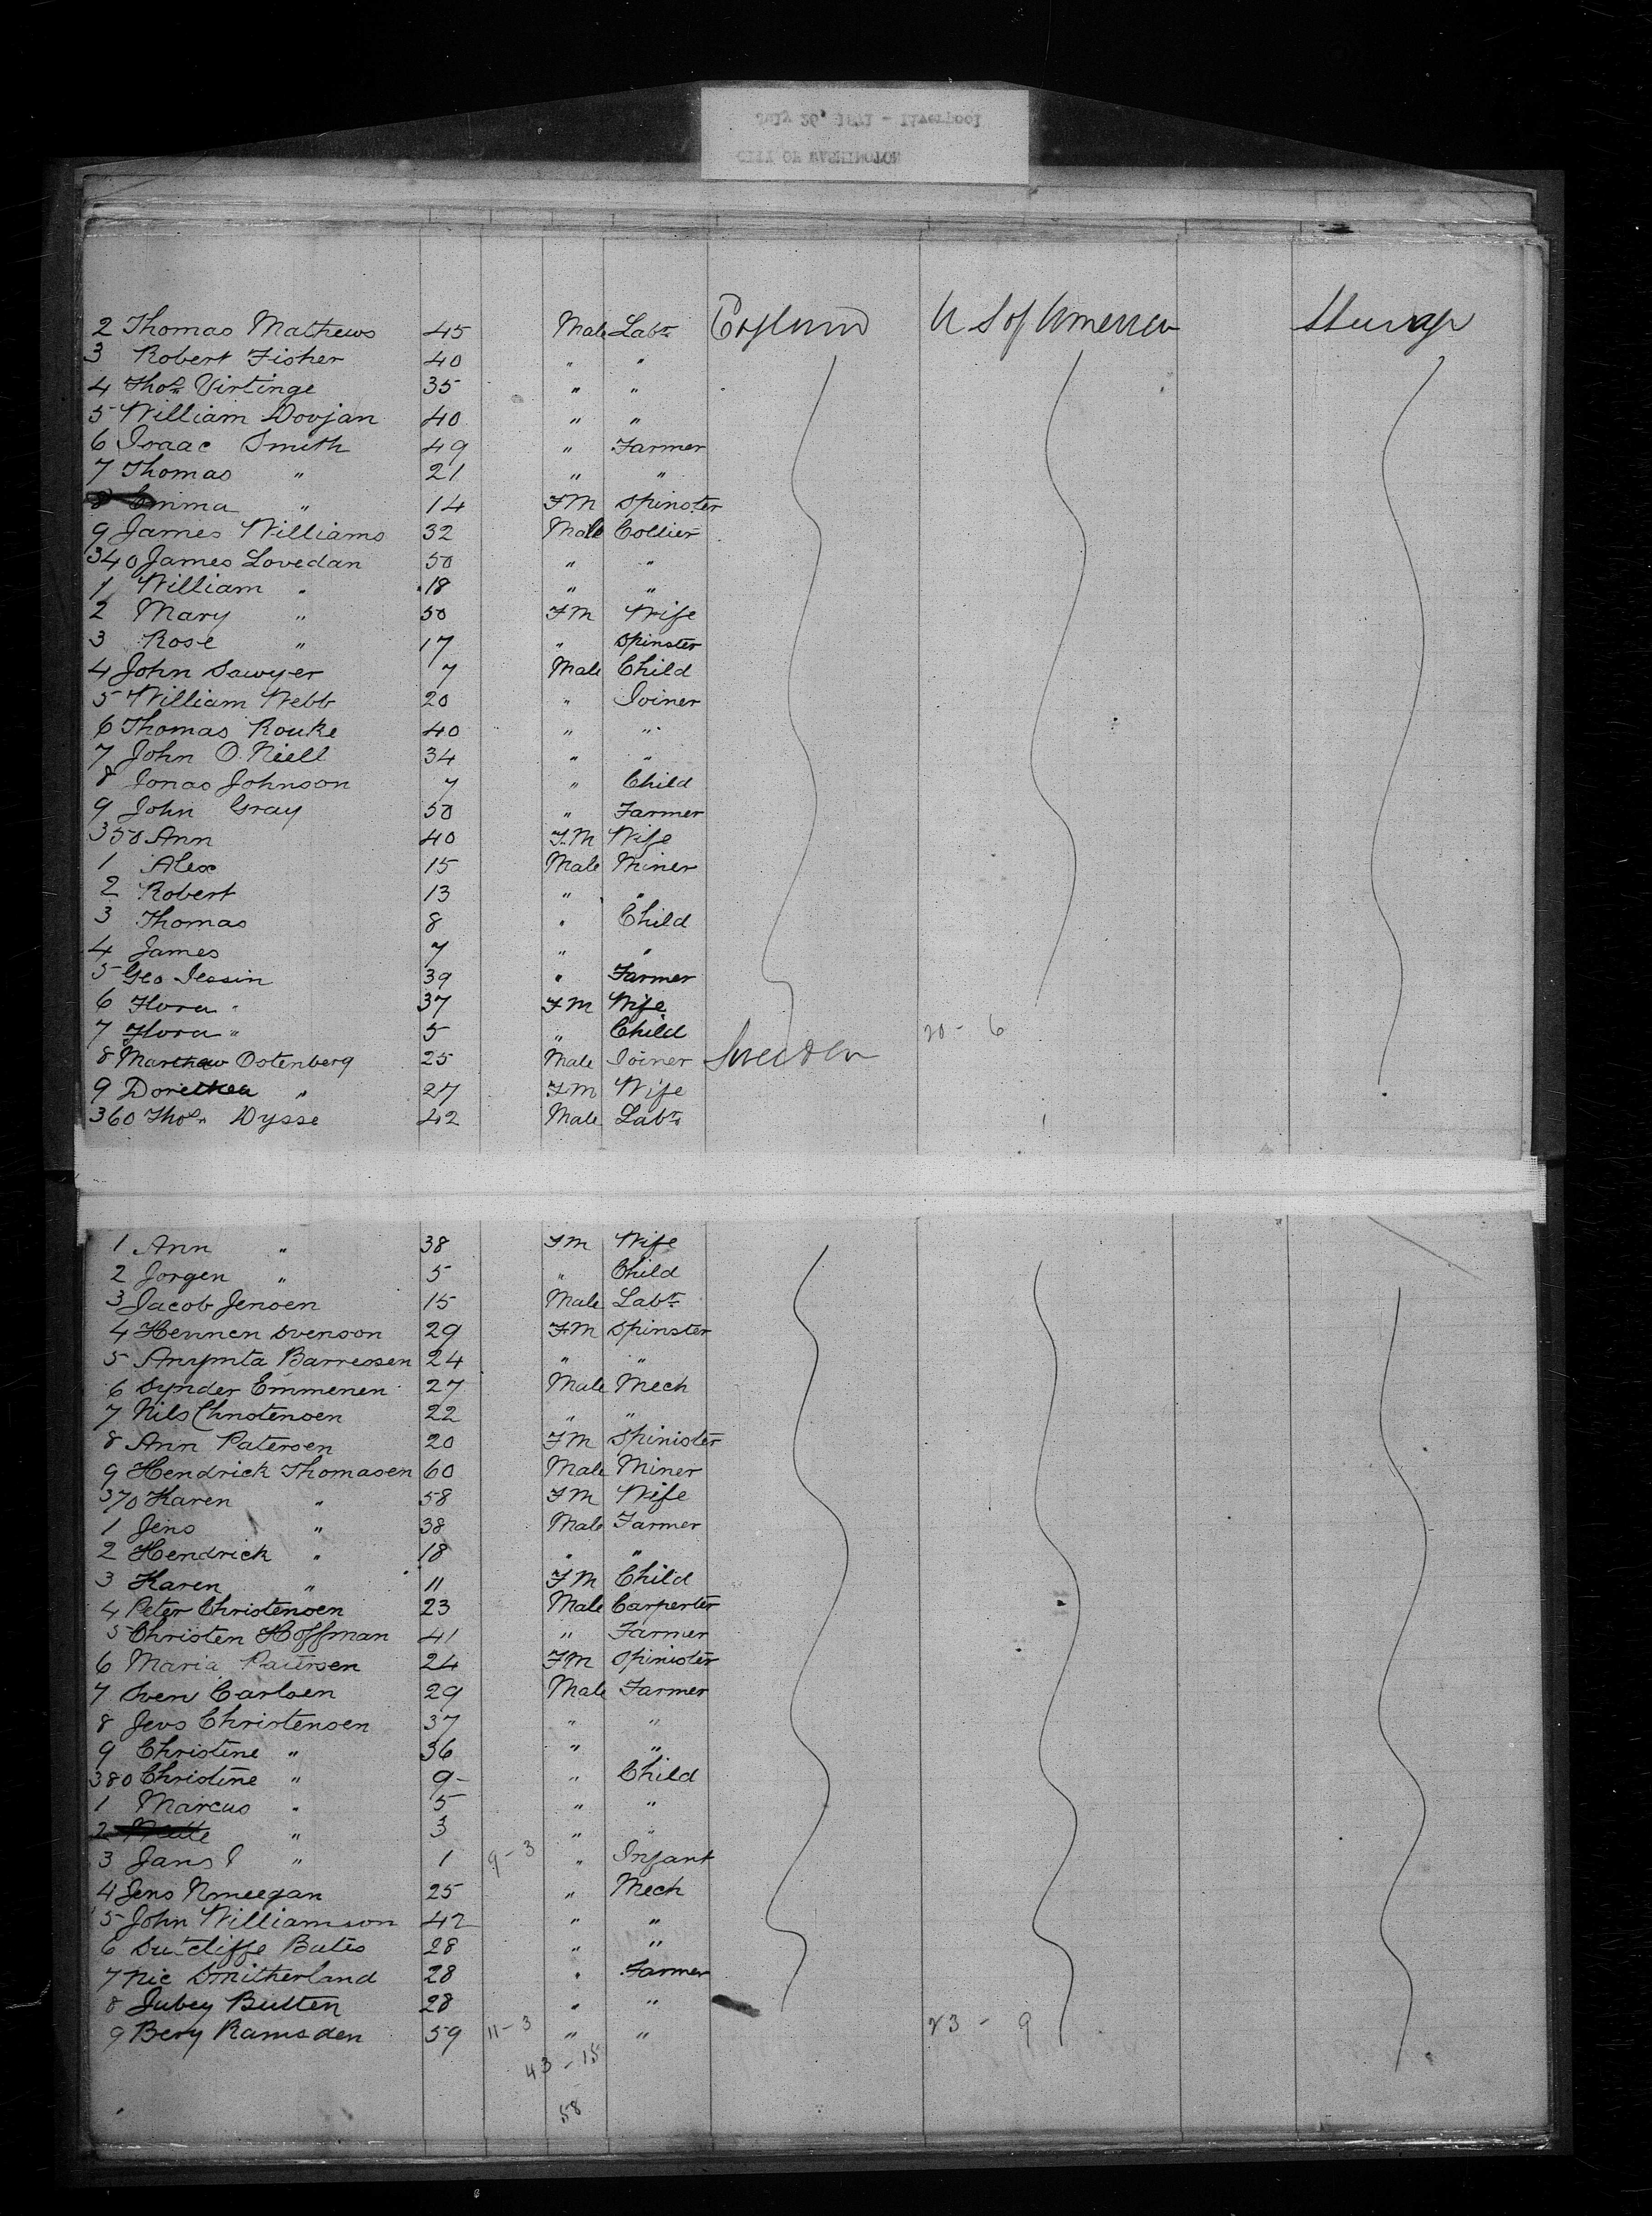 July 26, 1871 - Liverpool
CITY OF WASHINGTON
2 Thomas Mathews 45 Male Labr England U S of America Steerage
3 Robert Fisher 40 " "
4 Thos Virtinge 35 " "
5 William Dovjan 40 " "
6 Isaac Smith 49 " Farmer
7 Thomas " 21 " "
8 Emma " 14 FM Spinster
9 James Williams 32 Male Collier
340 James Lovedan 50 " "
1 William " 18 " "
2 Mary " 50 FM Wife
3 Rose " 17 " Spinster
4 John Sawyer 7 Male Child
5 William Webb 20 " Joiner
6 Thomas Rouke 40 " "
7 John O. Niell 34 " "
8 Jonas Johnson 7 " Child
9 John Gray 50 " Farmer
350 Ann 40 F.M Wife
1 Alex 15 Male Miner
2 Robert 13 " "
3 Thomas 8 " Child
4 James 7 " "
5 Geo Jessin 39 " Farmer
6 Flora " 37 FM Wife
7 Flora " 5 " Child 20 - 6
8 Marthew Ostenberg 25 Male Joiner Sweden
9 Dorethea " 27 FM Wife
360 Thos Dysse 42 Male Labr
1 Ann " 38 FM Wife
2 Jorgen " 5 " Child
3 Jacob Jensen 15 Male Labr
4 Hennen Svenson 29 FM Spinster
5 Anymta Barressen 24 " "
6 Synder Emmenen 27 Male Mech
7 Nils Christensen 22 " "
8 Ann Patersen 20 FM Spinister
9 Hendrick Thomasen 60 Male Miner
370 Karen " 58 FM Wife
1 Jens " 38 Male Farmer
2 Hendrick " 18 " "
3 Karen " 11 FM Child
4 Peter Christensen 23 Male Carperter
5 Christen Hoffman 41 " Farmer
6 Maria Patersen 24 FM Spinister
7 Sven Carlsen 29 Male Farmer
8 Jevs Christensen 37 " "
9 Christine " 36 " "
380 Christine " 9 " Child
1 Marcus " 5 " "
2 Mette " 3 " "
3 Jans " 1 9 - 3 " Infant
4 Jens Nmeegan 25 " Mech
5 John Williamson 42 " "
6 Sutcliffe Bates 28 " "
7 Nic Smitherland 28 " Farmer
8 Jubey Butten 28 " "
9 Bery Ramsden 59 11 - 3 " " 23 - 9
43 - 15
58